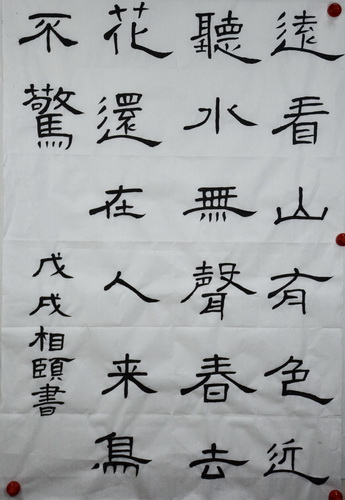 遠看山有色近
聽水無聲春去
花還在人来鳥
不驚
戊戌相頤書